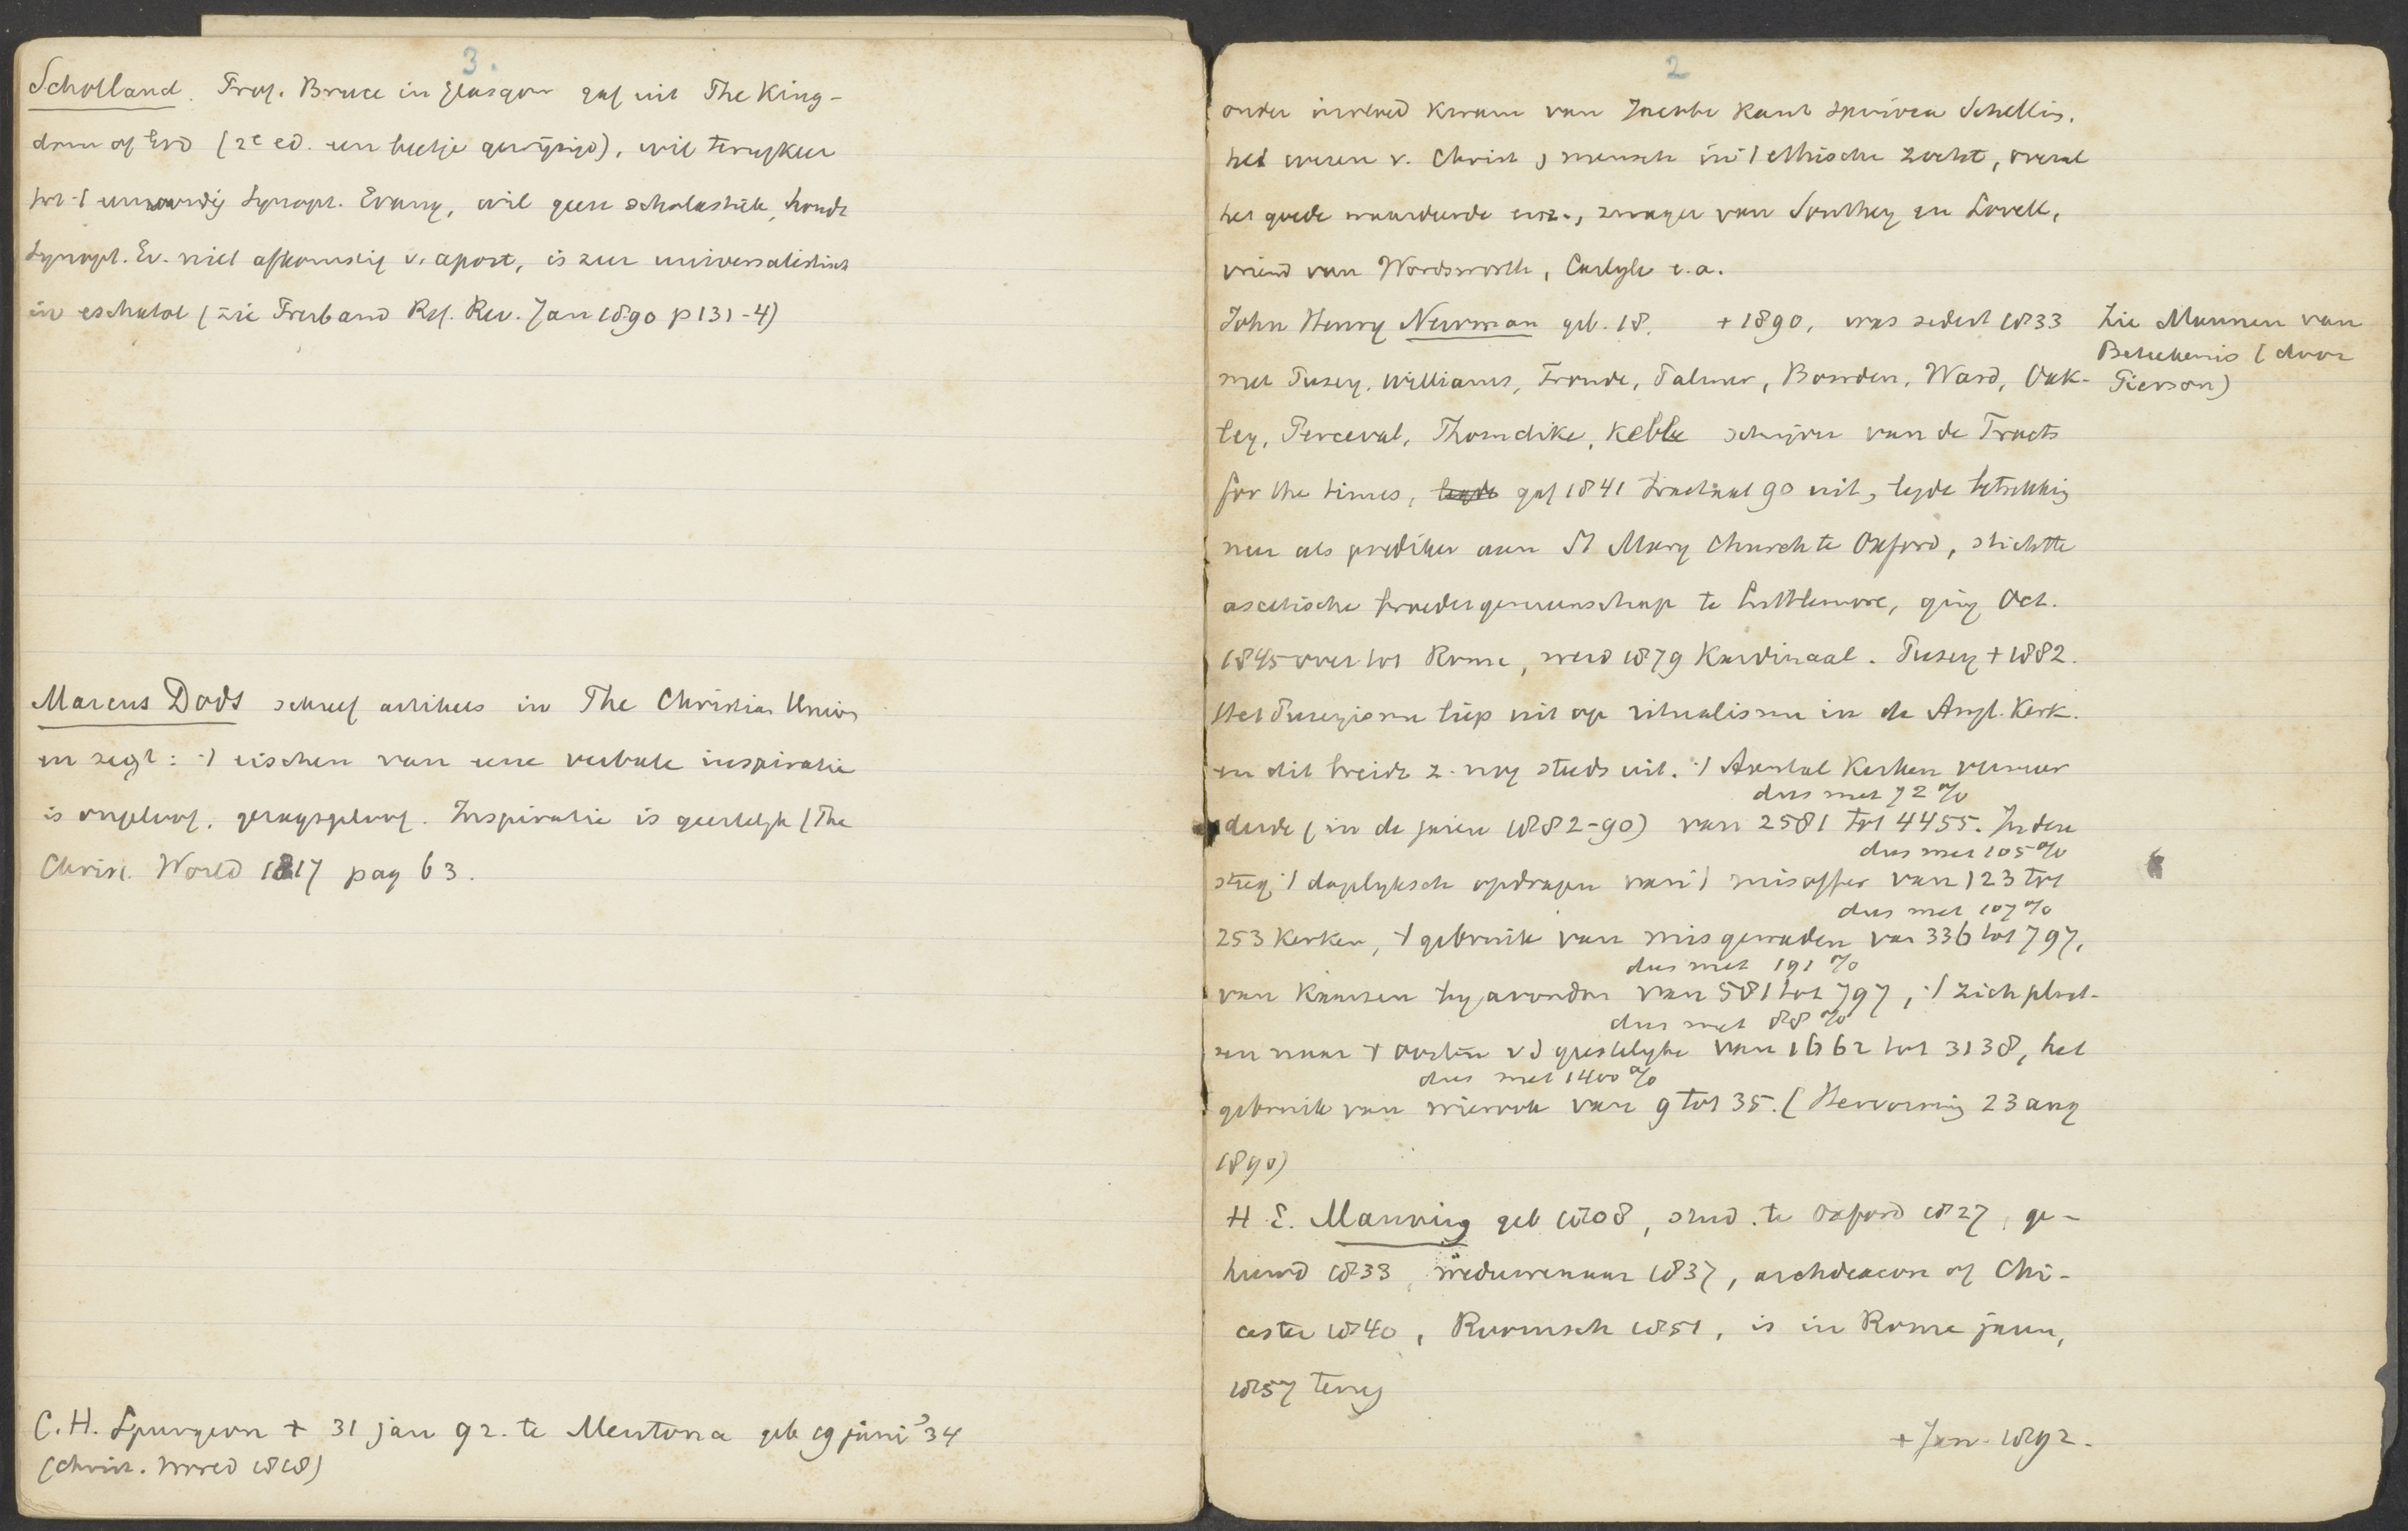 3.
Schotland. Prof. Bruce in Glasgow gaf uit The King-
dom of God (2e ed. een beetje gewijzigd), wil terugkeer
tot 't eenvoudig Synopt. Evang, wil geen scholastiek, houdt
Synopt. Ev. niet afkomstig v. apost, is zeer universalistisch
in eschatol (zie Presb and Ref. Rev. Jan 1890 p 131-4)
Marcus Dods schreef artikels in The Christian Union
en zegt: 't eischen van eene verbale inspiratie
is ongeloof, gezagsgeloof. Inspiratie is geestelijk (The
Christ. World 1817 pag 63.
C.H. Spurgeon + 31 jan 92. te Mentona geb 19 juni '34
(Christ. World 1818)
2
onder invloed kwam van Jacobi Kant Spinoza Schelling,
het wezen v. Christ & mensch in 't ethische zocht, overal
het goede waardeerde enz., zwager van Southey en Lovell,
vriend van Wordsworth, Carlyle e.a.
John Henry Newman geb. 18. + 1890, was sedert 1833
Zie Mannen van
Beteekenis (door
Pierson)
met Pusey, Williams, Froude, Palmer, Bowden, Ward, Oak-
ley, Perceval, Thorndike, Keble schrijver van de Tracts
for the times, legde gaf 1841 tractaat 90 uit, legde betrekking
neer als prediker aan St Mary Church te Oxford, stichtte
ascetische broedergemeenschap te Littlemore, ging Oct.
1845 over tot Rome, werd 1879 Kardinaal. Pusey + 1882.
Het Puseyisme liep uit op ritualisme in de Angl. Kerk.
en dit breidt z. nog steeds uit. 't Aantal Kerken vermeer
dus met 72 %
derde (in de jaren 1882-90) van 2581 tot 4455. In deze
dus met 105 %
steeg 't dagelyksch opdragen van 't misoffer van 123 tot
dus met 107 %
253 Kerken, 't gebruik van misgewaden van 336 tot 797,
dus met 191 %
van Kaarsen by avondm van 581 tot 797, 't zich plaat-
dus met 88 %
sen naar 't oosten v d geestelyke van 1662 tot 3138, het
dus met 1400 %
gebruik van wierook van 9 tot 35. (Hervorming 23 aug
1890)
H. E. Manning geb 1808, stud. te Oxford 1827, ge-
huwd 1833, weduwenaar 1837, archdeacon of Chi-
cester 1840, Roomsch 1851, is in Rome jaren,
1857 terug
+ Jan. 1892.